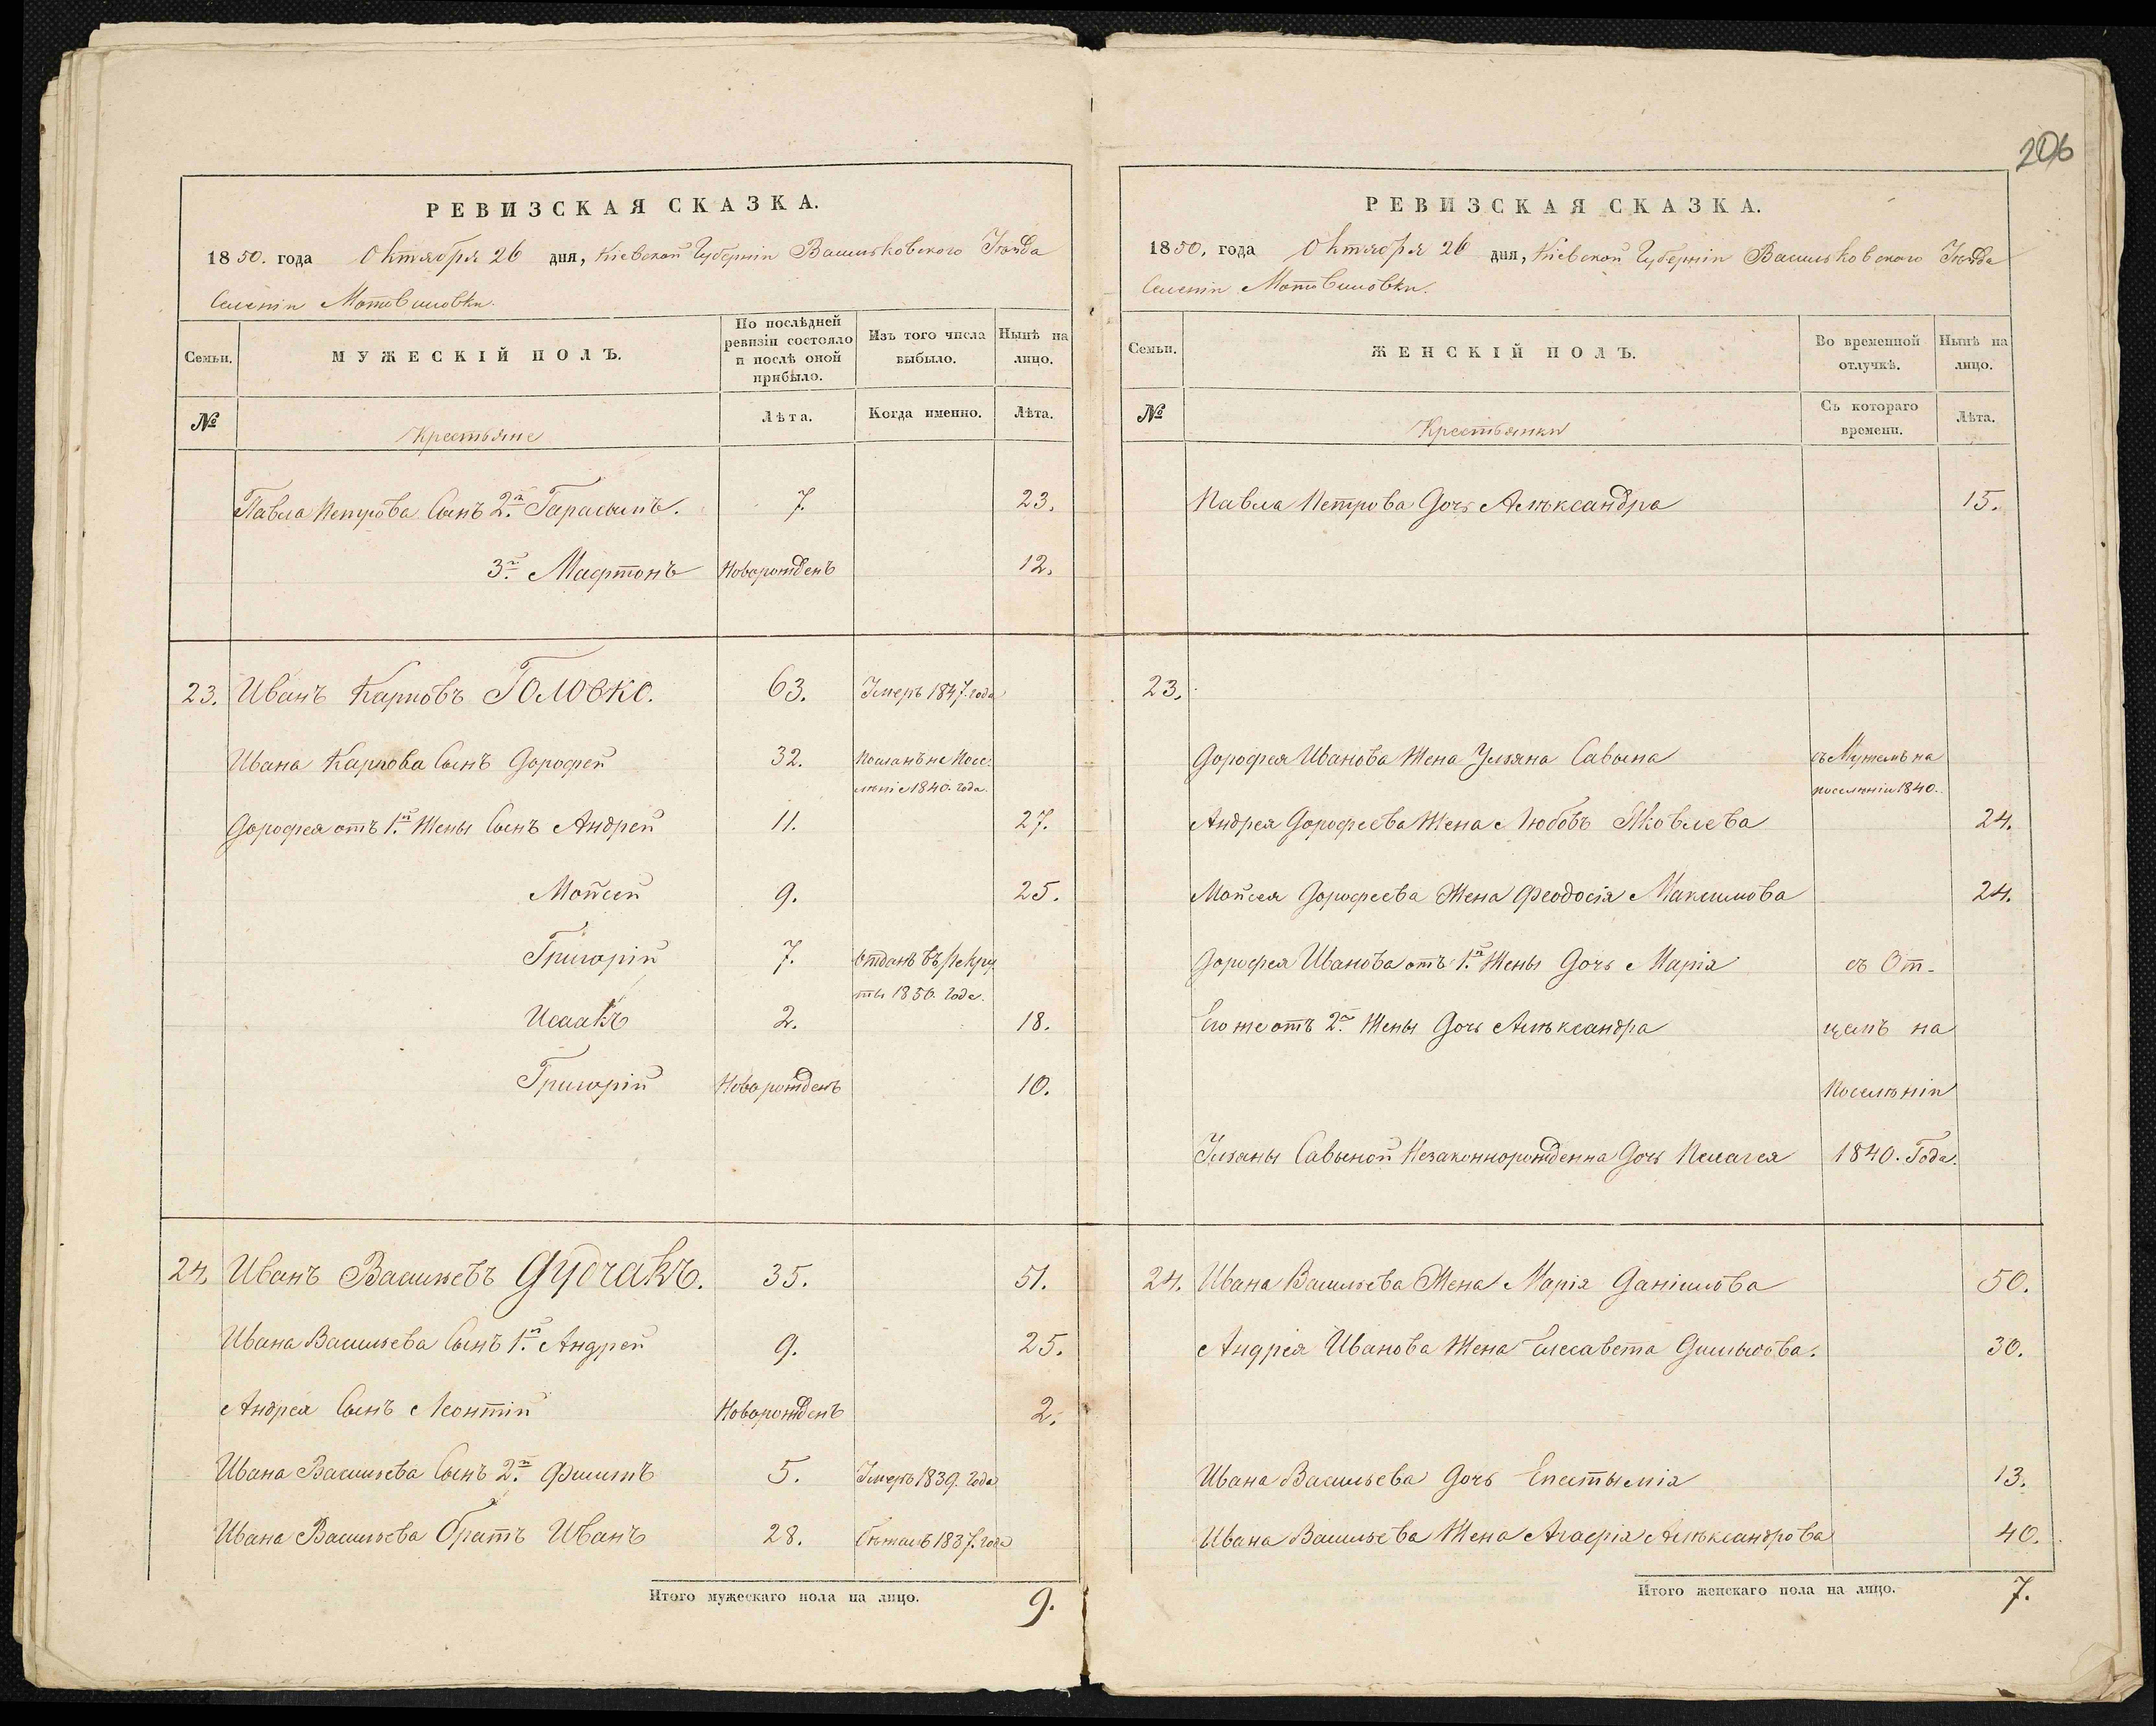 206
РЕВИЗСКАЯ СКАЗКА.
1850. года Октября 26 дня, Кіевской Губерніи Васильковскаго Уѣзда
Селенія Мотовиловки.
Семьи.
МУЖЕСКІЙ ПОЛЪ.
По послѣдней ревизіи состояло и послѣ оной прибыло.
Изъ того числа выбыло.
Нынѣ на лицо.
№
Крестьяне
Лѣта.
Когда именно.
Лѣта.
Павла Петрова Сынъ 2й Гарасымъ. 7. 23.
3й Мафтонъ Новорожденъ 12.
23. Иванъ Карповъ Головко. 63. Умеръ 1847. года
Ивана Карпова Сынъ Дорофей 32. Посланъ на Посе-
леніе 1840. года.
Дорофея отъ 1й Жены Сынъ Андрей 11. 27.
Мойсей 9. 25.
Григорій 7. Отданъ въ рекру
ты 1850. Года.
Исаакъ 2. 18.
Григорій Новорожденъ 10.
24. Иванъ Васильевъ Дудчакъ. 35. 51.
Ивана Васильева Сынъ 1й Андрей 9. 25.
Андрея Сынъ Леонтій Новорожденъ 2.
Ивана Васильева Сынъ 2й Филипъ 5. Умеръ 1839. Года
Ивана Васильева Братъ Иванъ 28. Бѣжалъ 1837. года
Итого мужескаго пола на лицо. 9.
РЕВИЗСКАЯ СКАЗКА.
1850, года Октября 26 дня, Кіевской Губерніи Васильковскаго Уѣзда
Селенія Мотовиловки.
Семьи.
ЖЕНСКІЙ ПОЛЪ.
Во временной отлучкѣ.
Нынѣ на лицо.
№
Крестьянки
Съ котораго времени.
Лѣта.
Павла Петрова Дочь Алѣксандра 15.
23.
Дорофея Иванова Жена Ульяна Савына съ Мужемъ на
поселѣніи 1840.
Андрея Дорофеева Жена Любовъ Яковлева 24.
Мойсея Дорофеева Жена Феодосія Максимова 24.
Дорофея Иванова отъ 1й Жены Дочь Марія съ От-
Его же отъ 2й Жены Дочь Алѣксандра цемъ на
Поселѣніи
Ульяны Савыной Незаконнорожденна Дочь Пелагея 1840. Года.
24. Ивана Васильева Жена Марія Данилова 50.
Андрея Иванова Жена Елисавета 30.
Ивана Васильева Дочь Епистыміа 13.
Ивана Васильева Жена Агафія Алѣксандрова 40.
Итого женскаго пола на лицо. 7.